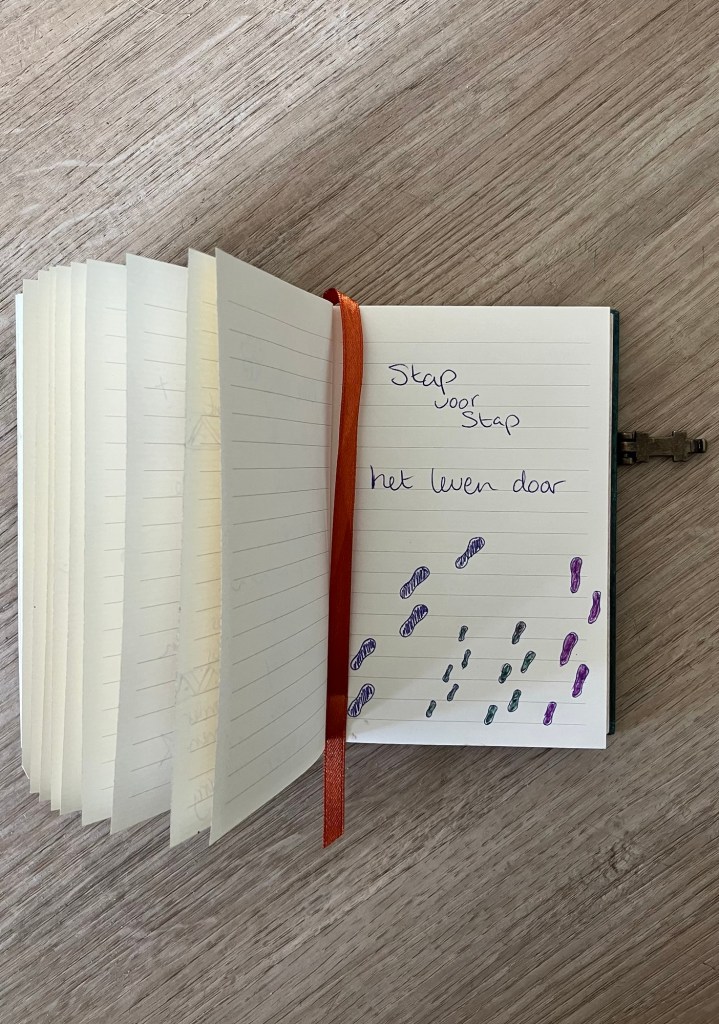 Stap
voor
Stap
het leven door